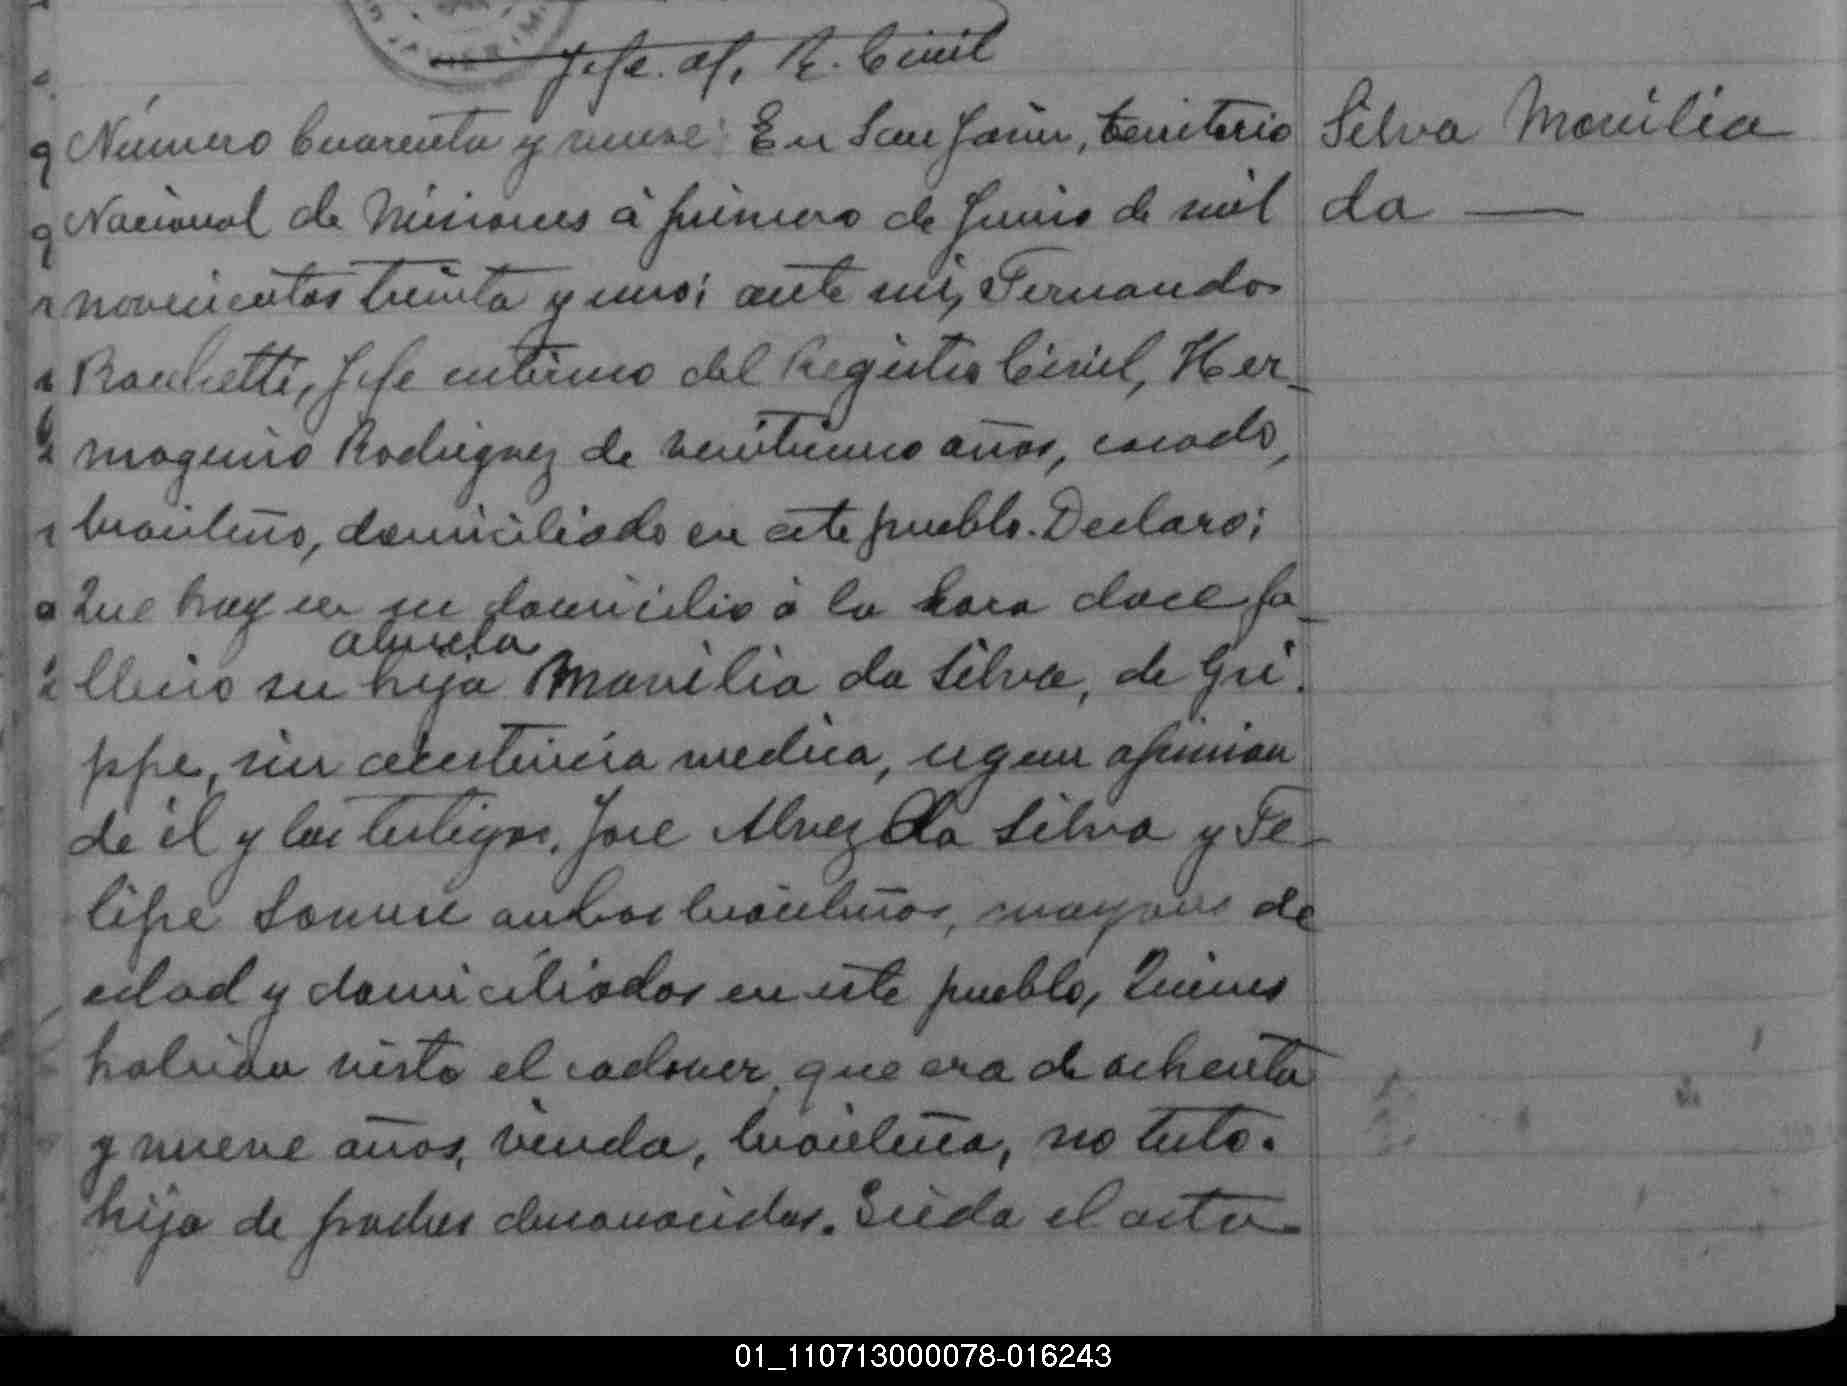 JAVIER (M
Jefe. of. R. Civil
Número Cuarenta y nueve: En San Javier, territorio
Nacional de Misiones á primero de Junio de mil
novecientos treinta y uno; ante mi, Fernando
Jefe interino del Registro Civil, Her-
mogenio Rodriguez de años, casado,
brasileño, domiciliado en este pueblo. Declaro;
Que hoy en su domicilio á la hora doce fa-
abuela
llecio su hija Marcilia da Silva, de Gri.
ppe, sin medica, segun opinion
de él y los testigos, Jose Alvez da Silva y Fe-
lipe ambos brasileños, mayores de
edad y domiciliados en este pueblo, Quienes
habian visto el cadaver, que era de ochenta
y nueve años, viuda, brasileña, no testo.
hija de padres desconocidos. Leida el acta
Silva Marcilia
da —
01_110713000078-016243